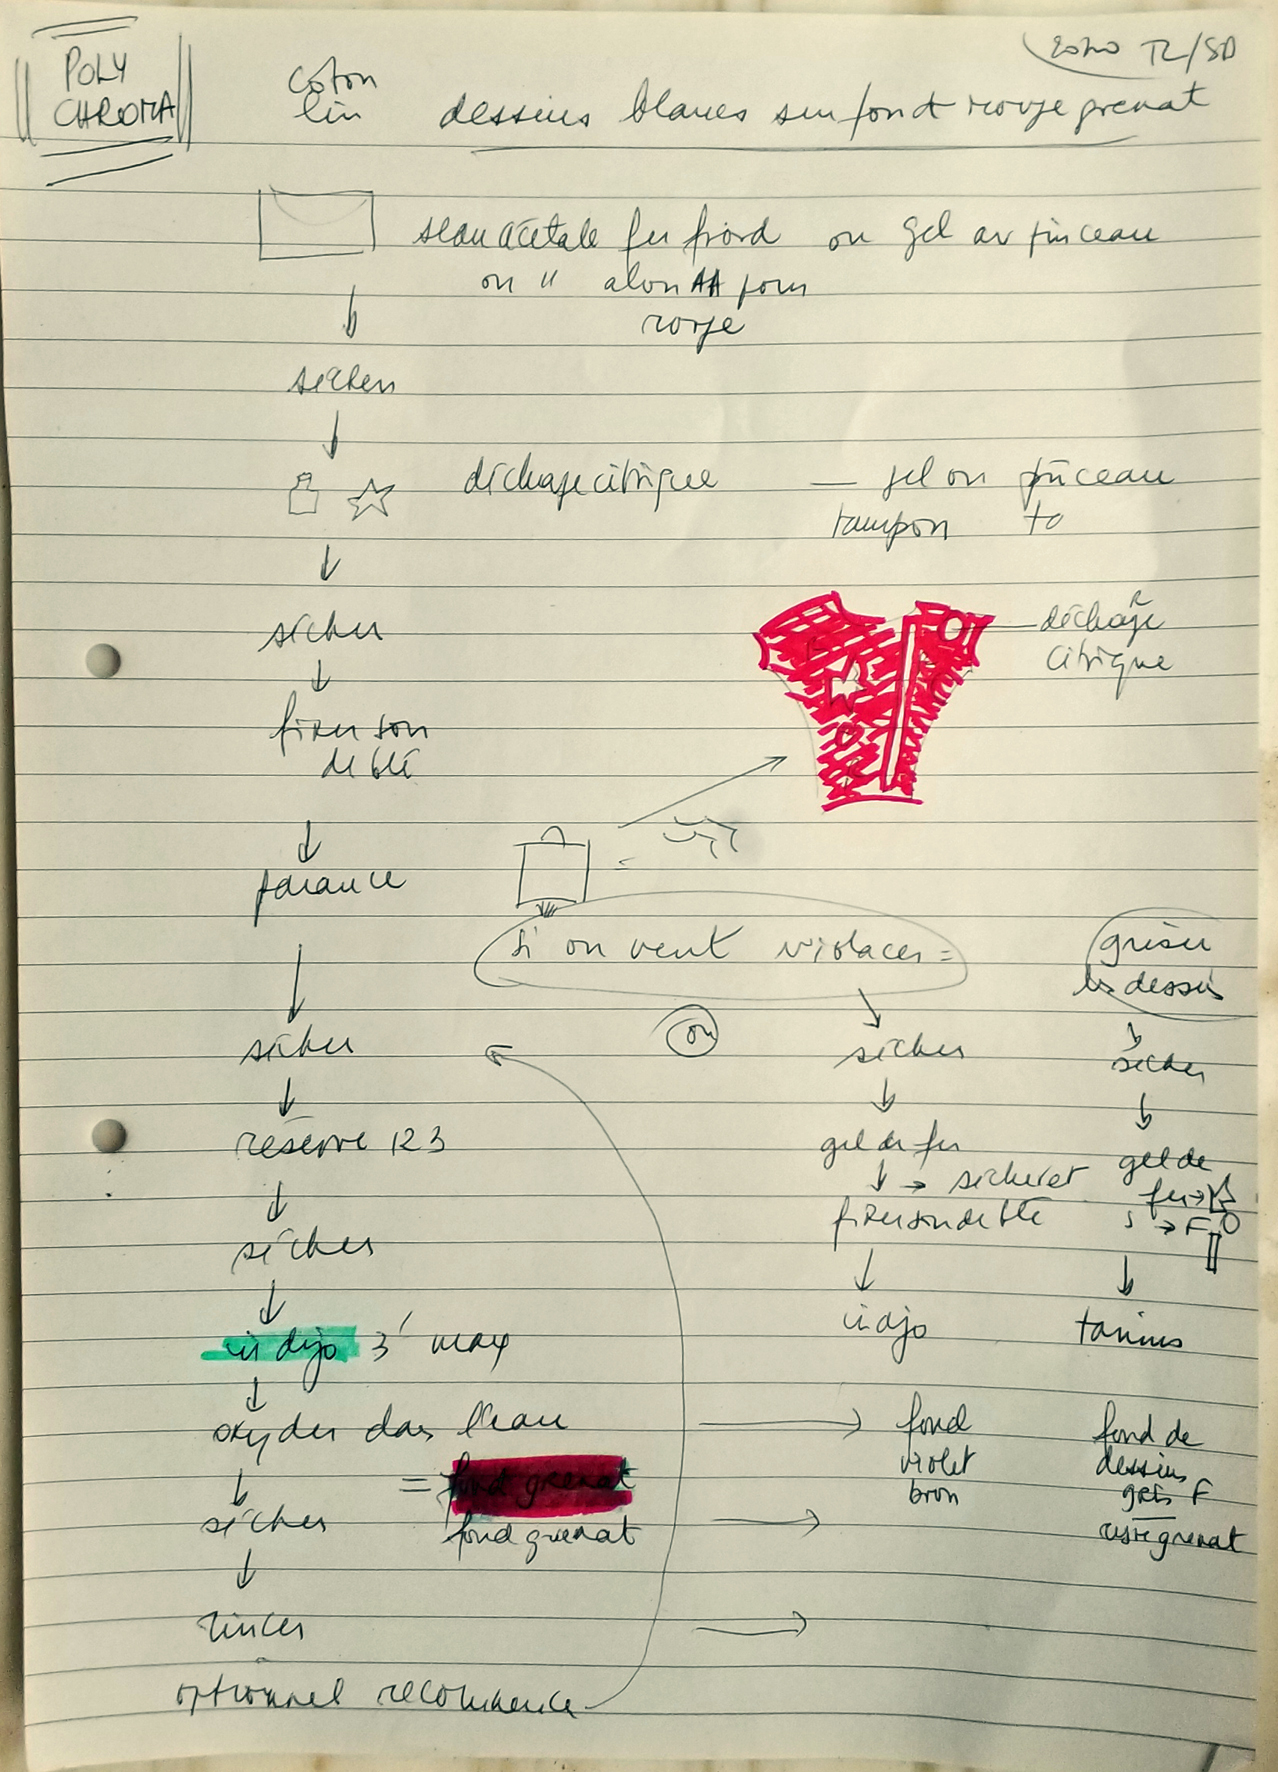 POLY
CHROMA
TL/SD
coton
lin
dessins blancs sur fond rouge grenat
seau acétate fer froid ou gel av pinceau
ou " alun AA pour
rouge
sécher
décharge citrique — gel ou pinceau
tampon to
sécher
décharge
citrique
fixer son
de blé
garance
si on veut violacer =
griser
les dessins
ou
sécher
sécher
sécher
réserve 123
gel de fer
gel de
fer →
→ sécher et
fixer son de blé
s → F
sécher
indigo 3' max
indigo
tanins
oxyder dans l'eau
fond
violet
brun
fond de
dessins
gris F
reste grenat
= fond grenat
fond grenat
sécher
rincer
optionnel recommence